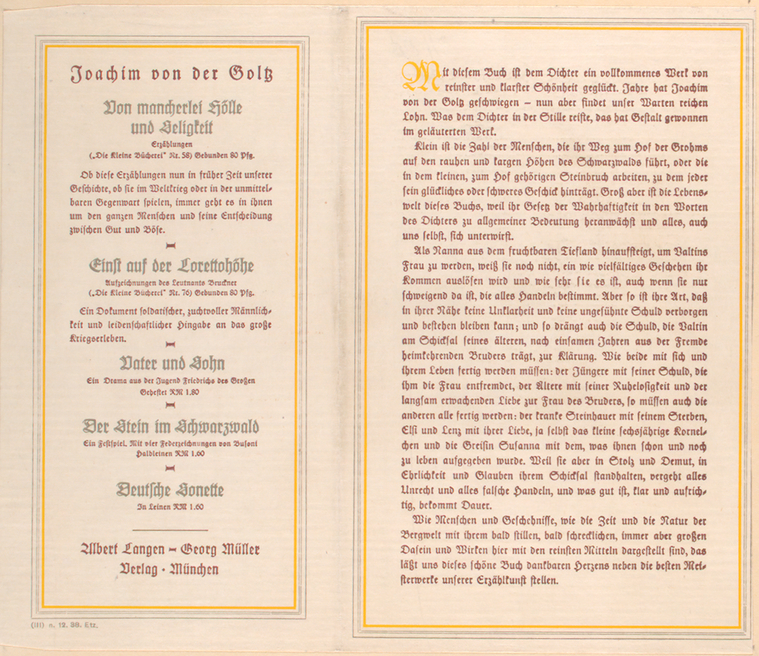 Joachim von der Goltz
Von mancherlei Hölle
und Seligkeit
Erzählungen
(„Die Kleine Bücherei“ Nr. 58) Gebunden 80 Pfg.
Ob diese Erzählungen nun in früher Zeit unserer
Geschichte, ob sie im Weltkrieg oder in der unmittel-
baren Gegenwart spielen, immer geht es in ihnen
um den ganzen Menschen und seine Entscheidung
zwischen Gut und Böse.
Einst auf der Lorettohöhe
Aufzeichnungen des Leutnants Bruckner
(„Die Kleine Bücherei“ Nr. 76) Gebunden 80 Pfg.
Ein Dokument soldatischer, zuchtvoller Männlich-
keit und leidenschaftlicher Hingabe an das große
Kriegserleben.
Vater und Sohn
Ein Drama aus der Jugend Friedrichs des Großen
Geheftet RM 1.80
Der Stein im Schwarzwald
Ein Festspiel. Mit vier Federzeichnungen von Busoni
Halbleinen RM 1.60
Deutsche Sonette
In Leinen RM 1.60
Albert Langen – Georg Müller
Verlag · München
(III) n. 12. 38. Etz.
Mit diesem Buch ist dem Dichter ein vollkommenes Werk von
reinster und klarster Schönheit geglückt. Jahre hat Joachim
von der Goltz geschwiegen – nun aber findet unser Warten reichen
Lohn. Was dem Dichter in der Stille reifte, das hat Gestalt gewonnen
im geläuterten Werk.
Klein ist die Zahl der Menschen, die ihr Weg zum Hof der Grohms
auf den rauhen und kargen Höhen des Schwarzwalds führt, oder die
in dem kleinen, zum Hof gehörigen Steinbruch arbeiten, zu dem jeder
sein glückliches oder schweres Geschick hinträgt. Groß aber ist die Lebens-
welt dieses Buchs, weil ihr Gesetz der Wahrhaftigkeit in den Worten
des Dichters zu allgemeiner Bedeutung heranwächst und alles, auch
uns selbst, sich unterwirft.
Als Nanna aus dem fruchtbaren Tiefland hinaufsteigt, um Valtins
Frau zu werden, weiß sie noch nicht, ein wie vielfältiges Geschehen ihr
Kommen auslösen wird und wie sehr sie es ist, auch wenn sie nur
schweigend da ist, die alles Handeln bestimmt. Aber so ist ihre Art, daß
in ihrer Nähe keine Unklarheit und keine ungesühnte Schuld verborgen
und bestehen bleiben kann; und so drängt auch die Schuld, die Valtin
am Schicksal seines älteren, nach einsamen Jahren aus der Fremde
heimkehrenden Bruders trägt, zur Klärung. Wie beide mit sich und
ihrem Leben fertig werden müssen: der Jüngere mit seiner Schuld, die
ihm die Frau entfremdet, der Ältere mit seiner Ruhelosigkeit und der
langsam erwachenden Liebe zur Frau des Bruders, so müssen auch die
anderen alle fertig werden: der kranke Steinhauer mit seinem Sterben,
Elsi und Lenz mit ihrer Liebe, ja selbst das kleine sechsjährige Kornel-
chen und die Greisin Susanna mit dem, was ihnen schon und noch
zu leben aufgegeben wurde. Weil sie aber in Stolz und Demut, in
Ehrlichkeit und Glauben ihrem Schicksal standhalten, vergeht alles
Unrecht und alles falsche Handeln, und was gut ist, klar und aufrich-
tig, bekommt Dauer.
Wie Menschen und Geschehnisse, wie die Zeit und die Natur der
Bergwelt mit ihrem bald stillen, bald schrecklichen, immer aber großen
Dasein und Wirken hier mit den reinsten Mitteln dargestellt sind, das
läßt uns dieses schöne Buch dankbaren Herzens neben die besten Mei-
sterwerke unserer Erzählkunst stellen.